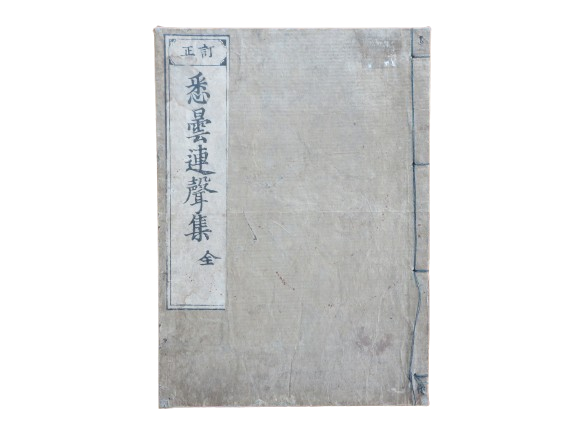 訂正
悉曇連聲集
全